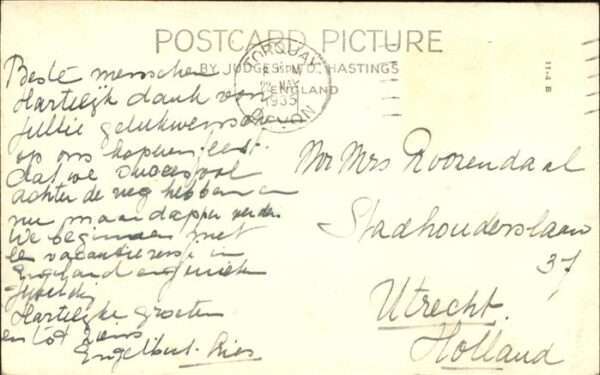 POSTCARD PICTURE
BY JUDGES LTD HASTINGS
ENGLAND
TORQUAY
MAY
1935
DEVON
11-4 B
Beste menschen
Hartelijk dank voor
jullie gelukwenschen
op ons koperen feest
dat we succesvol
achter de rug hebben en
nu maar dapper verder
We beginnen met
een vacantiereis in
Engeland en genieten
Hartelijke groeten
en tot ziens
Engelbert Ries
Mr Mrs Roozendaal
Stadhouderslaan
37
Utrecht.
Holland